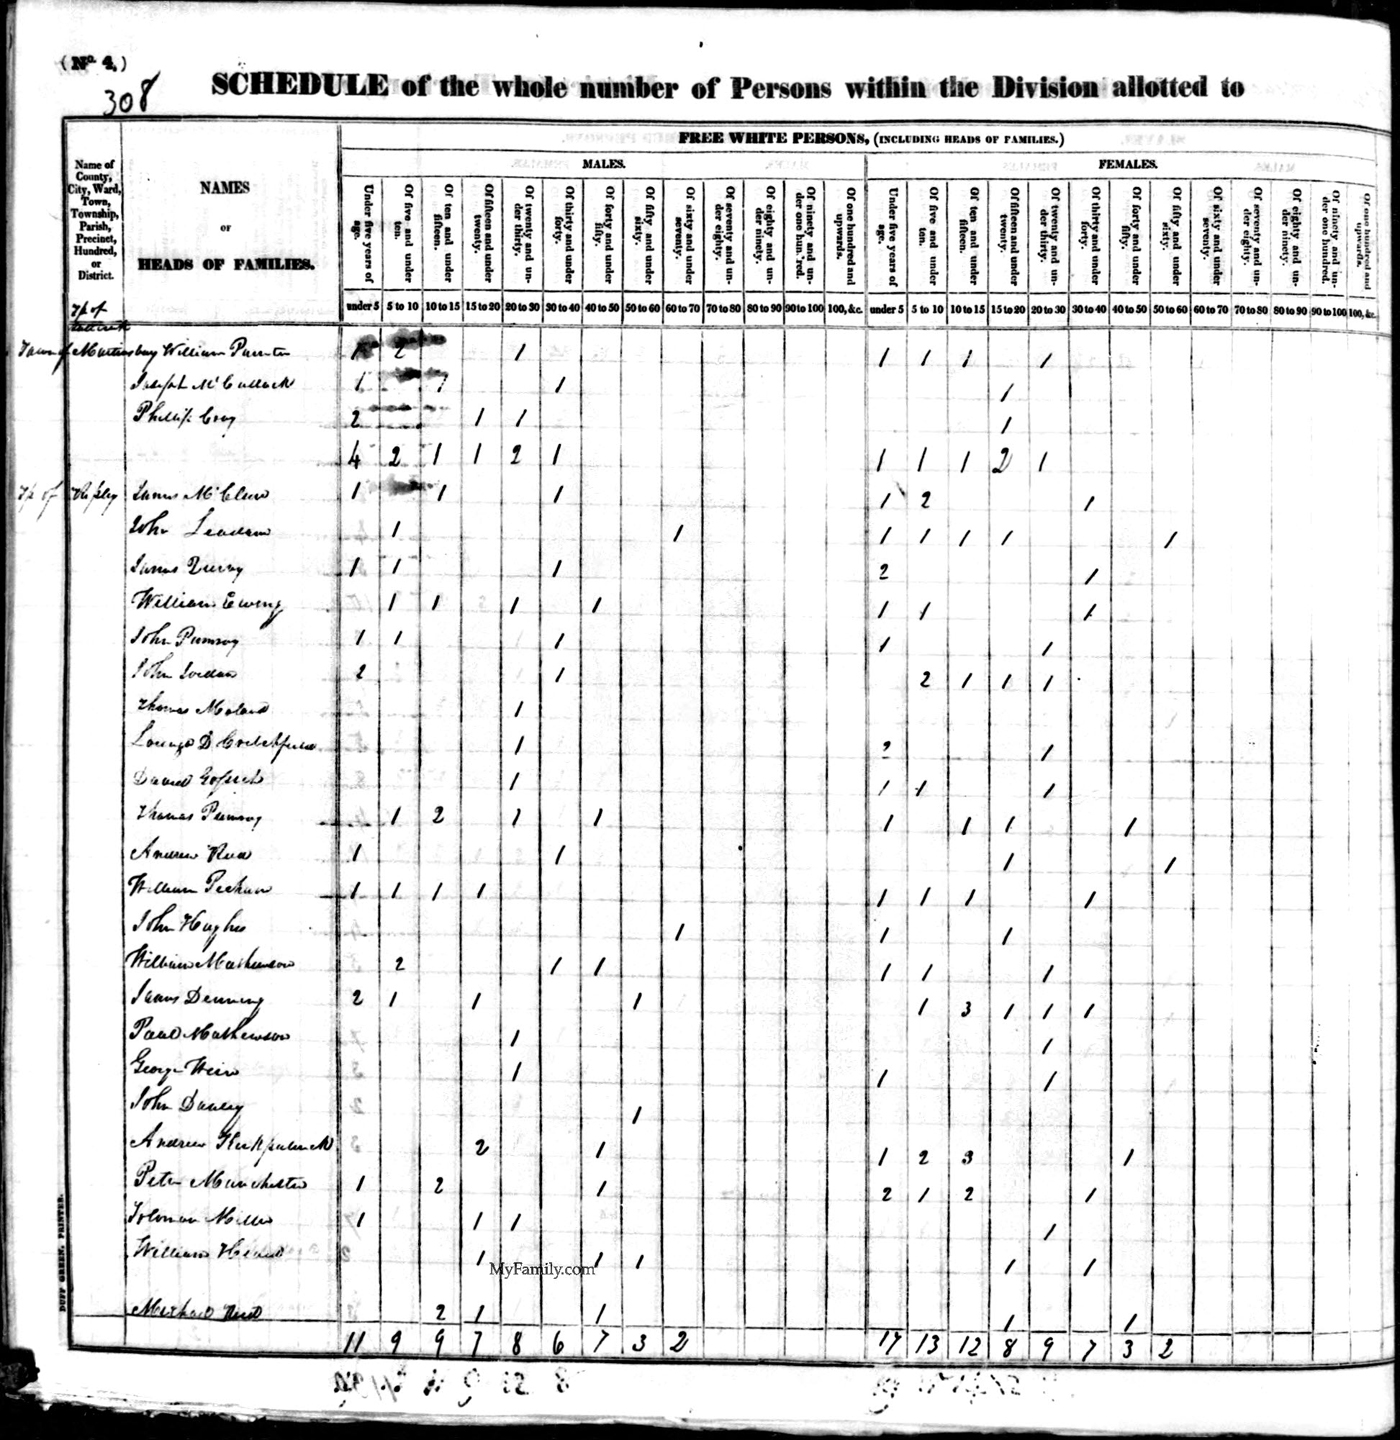 (No. 4.)
308
SCHEDULE of the whole number of Persons within the Division allotted to
FREE WHITE PERSONS, (INCLUDING HEADS OF FAMILIES.)
MALES. FEMALES.
Name of County, City, Ward, Town, Township, Parish, Precinct, Hundred, or District.
NAMES
OR
HEADS OF FAMILIES.
Under five years of age. Of five and under ten. Of ten and under fifteen. Of fifteen and under twenty. Of twenty and under thirty. Of thirty and under forty. Of forty and under fifty. Of fifty and under sixty. Of sixty and under seventy. Of seventy and under eighty. Of eighty and under ninety. Of ninety and under one hundred. Of one hundred and upwards. Under five years of age. Of five and under ten. Of ten and under fifteen. Of fifteen and under twenty. Of twenty and under thirty. Of thirty and under forty. Of forty and under fifty. Of fifty and under sixty. Of sixty and under seventy. Of seventy and under eighty. Of eighty and under ninety. Of ninety and under one hundred. Of one hundred and upwards.
under 5 5 to 10 10 to 15 15 to 20 20 to 30 30 to 40 40 to 50 50 to 60 60 to 70 70 to 80 80 to 90 90 to 100 100, &c. under 5 5 to 10 10 to 15 15 to 20 20 to 30 30 to 40 40 to 50 50 to 60 60 to 70 70 to 80 80 to 90 90 to 100 100, &c.
Tp of
Town of Martinsburg William 1 2 1 1 1 1 1
Joseph McCullock 1 1 1 1
Phillip 2 1 1 1
4 2 1 1 2 1 1 1 1 2 1
Tp of Ripley James McClure 1 1 1 1 2 1
John 1 1 1 1 1 1 1
James 1 1 1 2 1
William Ewing 1 1 1 1 1 1 1
John Pumroy 1 1 1 1 1
John Jordan 2 1 2 1 1 1
Thomas 1
D 1 2 1
David 1 1 1 1
Thomas Pumroy 1 2 1 1 1 1 1 1
Andrew 1 1 1 1
William 1 1 1 1 1 1 1 1
John Hughs 1 1 1
William Mathewson 2 1 1 1 1 1
James Denning 2 1 1 1 1 3 1 1 1
Paul Mathewson 1 1
George Weir 1 1 1
John 1
Andrew Kirkpatrick 2 1 1 2 3 1
Peter Manchester 1 2 1 2 1 2 1
Solomon Miller 1 1 1 1
William 1 1 1 1 1
MyFamily.com
Michael 2 1 1 1 1
11 9 9 7 8 6 7 3 2 17 13 12 8 9 7 3 2
DUFF GREEN, PRINTER.